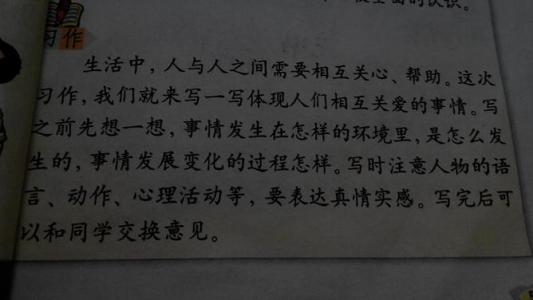 的认识。
习作
生活中，人与人之间需要相互关心、帮助。这次
习作，我们就来写一写体现人们相互关爱的事情。写
之前先想一想，事情发生在怎样的环境里，是怎么发
生的，事情发展变化的过程怎样。写时注意人物的语
言、动作、心理活动等，要表达真情实感。写完后可
以和同学交换意见。